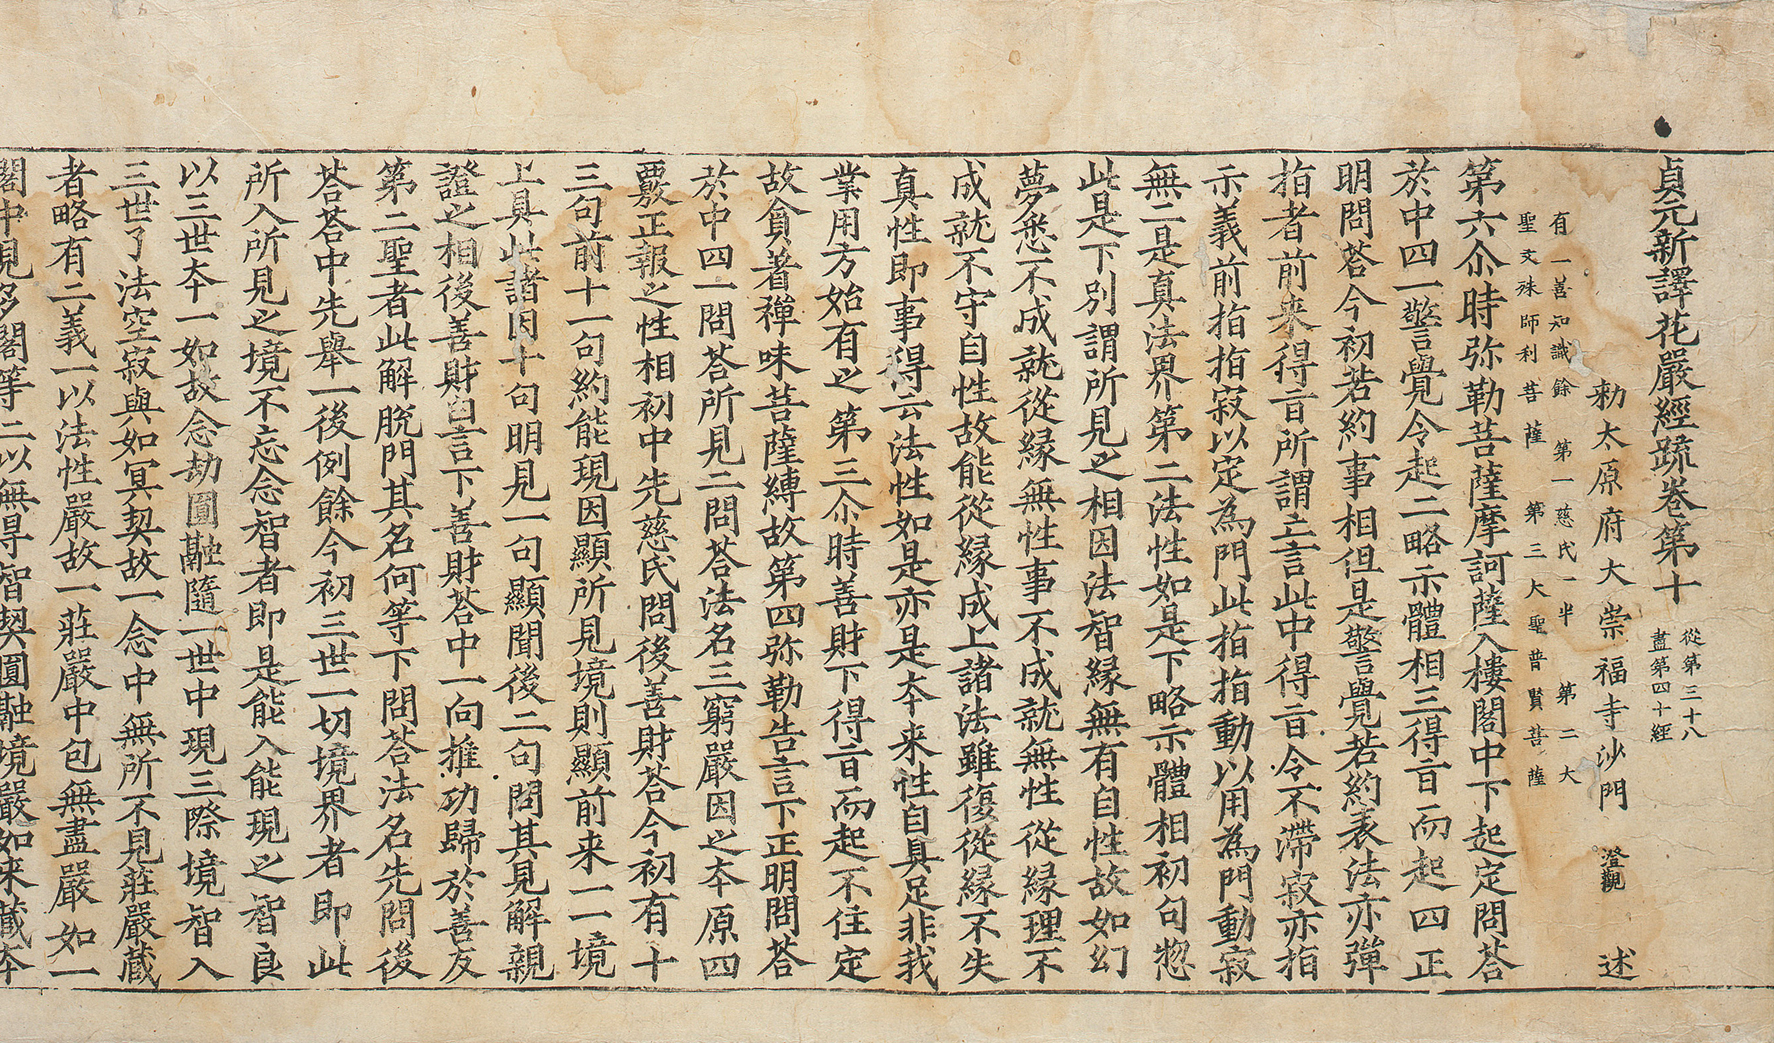 貞元新譯花嚴經疏卷第十
從第三十八
盡第四十經
勑太原府大崇福寺沙門 澄觀 述
有一善知識餘 第一慈氏一半 第二大
聖文殊師利菩薩 第三大聖普賢菩薩
第六尒時弥勒菩薩摩訶薩入樓閣中下起定問荅
於中四一警覺令起二略示體相三得㫖而起四正
明問荅今初若約事相但是警覺若約表法亦彈
指者前来得㫖所謂𠅘言此中得㫖令不滯寂亦指
示義前指指寂以定為門此指指動以用為門動寂
無二是真法界第二法性如是下略示體相初句惣
此是下別謂所見之相因法智緣無有自性故如幻
夢悉不成就從緣無性事不成就無性從緣理不
成就不守自性故能從緣成上諸法雖復從緣不失
真性即事得云法性如是亦是夲来性自具足非我
業用方始有之第三尒時善財下得㫖而起不住定
故貪著禪味菩薩縛故第四弥勒告言下正明問荅
於中四一問荅所見二問荅法名三窮嚴因之夲原四
覈正報之性相初中先慈氏問後善財荅今初有十
三句前十一句約能現因顯所見境則顯前来一一境
上具此諸因十句明見一句顯聞後二句問其見解親
證之相後善財白言下善財荅中一向推功歸於善友
第二聖者此解脫門其名何等下問荅法名先問後
荅荅中先舉一後例餘今初三世一切境界者即此
所入所見之境不忘念智者即是能入能現之智良
以三世夲一如故念劫圓融隨一世中現三際境智入
三世了法空寂與如冥契故一念中無所不見莊嚴藏
者略有二義一以法性嚴故一莊嚴中包無盡嚴如一
閣中見多閣等二以無㝵智契圓融境嚴如来藏夲